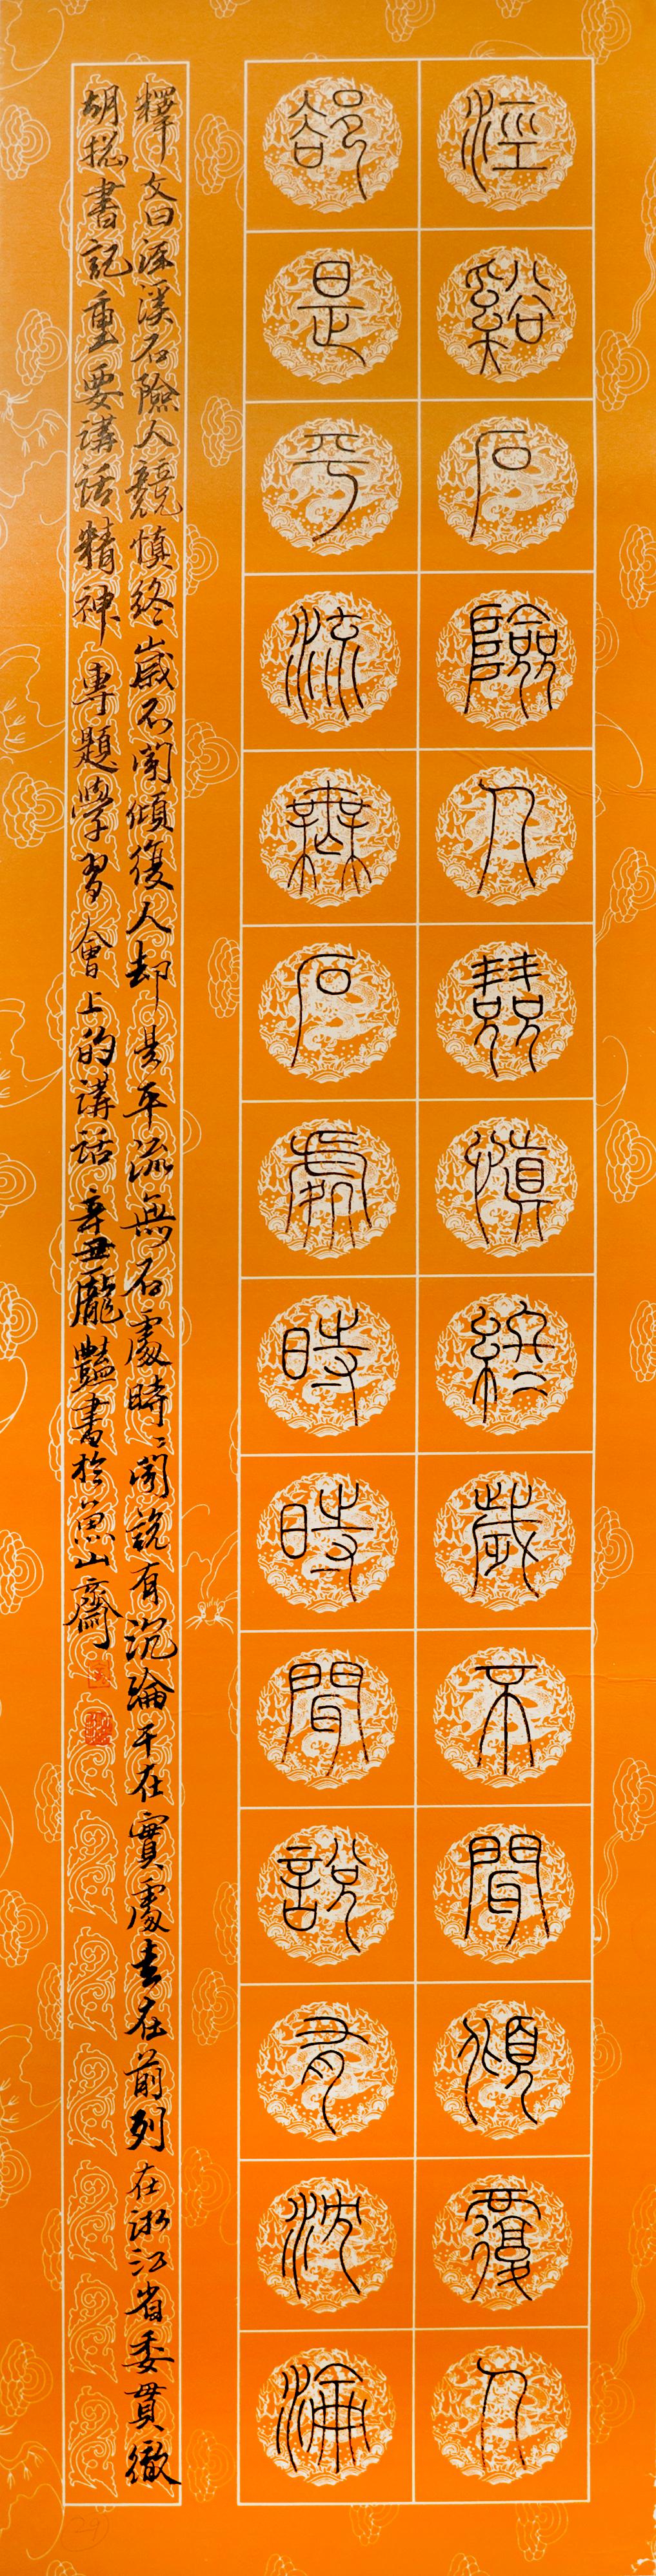 涇谿石險人兢慎終歲不聞傾覆人
卻是平流無石處時時聞說有沈淪
釋文曰涇溪石險人兢慎終歲不聞傾復人却是平流無石處時時聞說有沉淪干在實處走在前列在浙江省委貫徹
胡揔書記重要講話精神專題學習會上的講話辛丑龐豔書於魚山齋